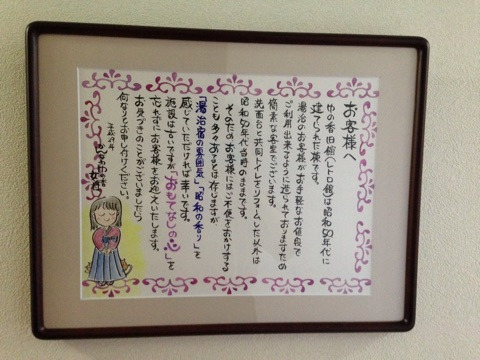 お客様へ
ゆの香旧館(レトロ館)は昭和50年代に
建てられた棟です。
湯治のお客様がお手軽なお値段で
ご利用出来るように造られておりますため
簡素な客室でございます。
洗面台と共同トイレをリフォームした以外は
昭和50年代当時のままです。
そのためお客様にはご不便をおかけする
ことも多々あるとは存じますが
「湯治宿の雰囲気」「昭和の香り」を
感じていただければ幸いです。
施設は古いですが「おもてなしの心」を
忘れずにお客様をお迎えいたします。
お気づきのことがございましたら
何なりとお申し付けください。